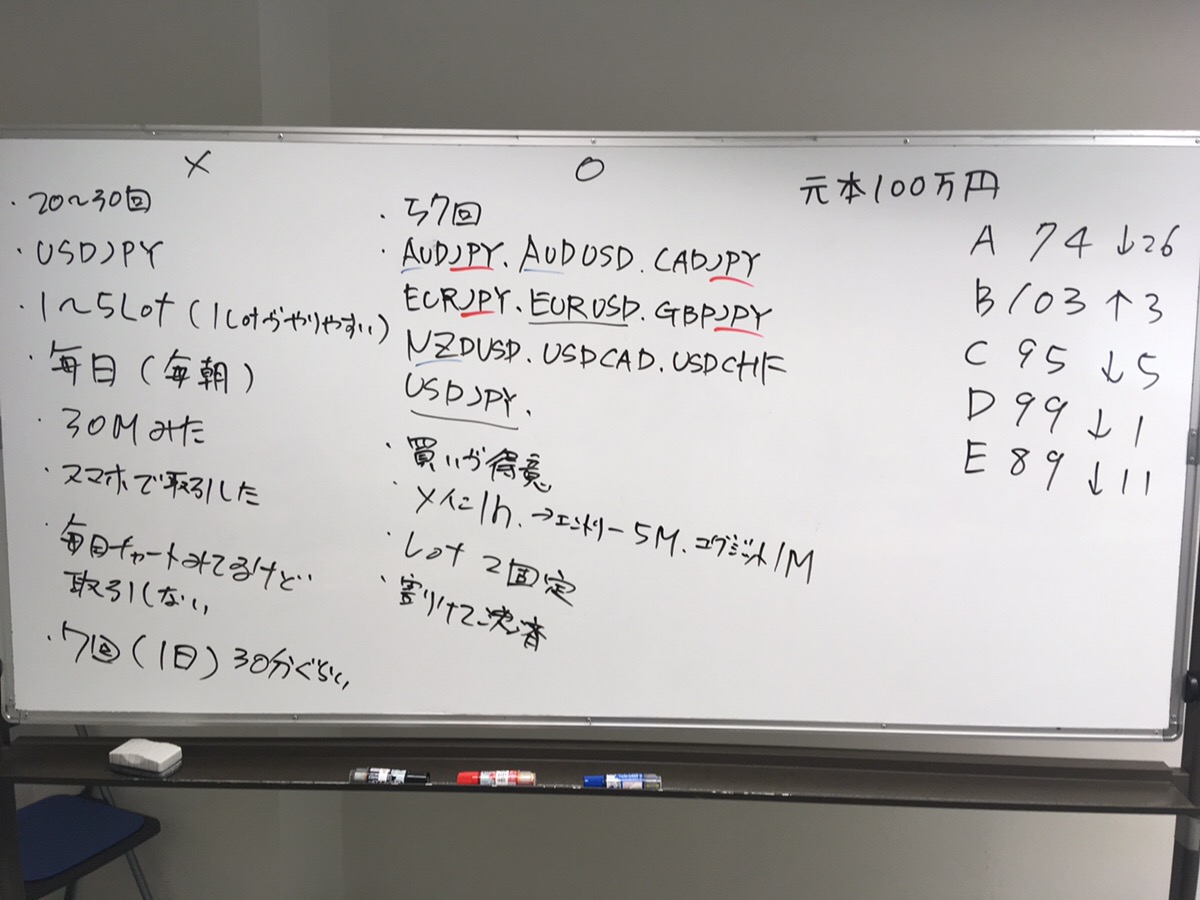 ×
・20〜30回
・USDJPY
・1〜5Lot(1Lotがやりやすい)
・毎日(毎朝)
・30Mみた
・スマホで取引した
・毎日チャートみてるけど
取引しない
・7回(1日)30分ぐらい
○
・57回
・AUDJPY.AUDUSD.CADJPY
EURJPY.EURUSD.GBPJPY
NZDUSD.USDCAD.USDCHF
USDJPY.
・買いが得意
・メイン1h.→エントリー5M.エグジット1M
・Lot 2固定
・割りけて決済
元本100万円
A 74 ↓26
B 103 ↑3
C 95 ↓5
D 99 ↓1
E 89 ↓11